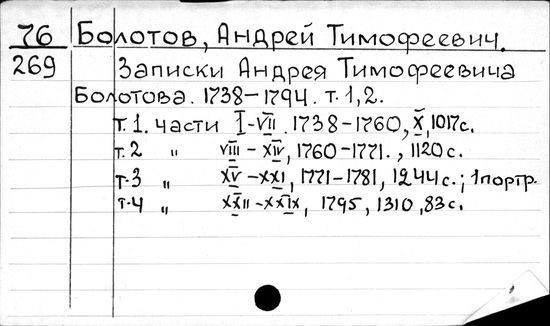 76 Болотов, Андрей Тимофеевич.
269 Записки Андрея Тимофеевича
Болотова. 1738-1794. т. 1, 2.
т. 1. части I-VII. 1738-1760, X, 1017с.
т. 2 " VIII - XIV, 1760-1771., 1120 с.
т. 3 " XV - XXI, 1771-1781, 1244 с.; 1 портр.
т. 4 " XXII - XXIX, 1795, 1310, 83 с.